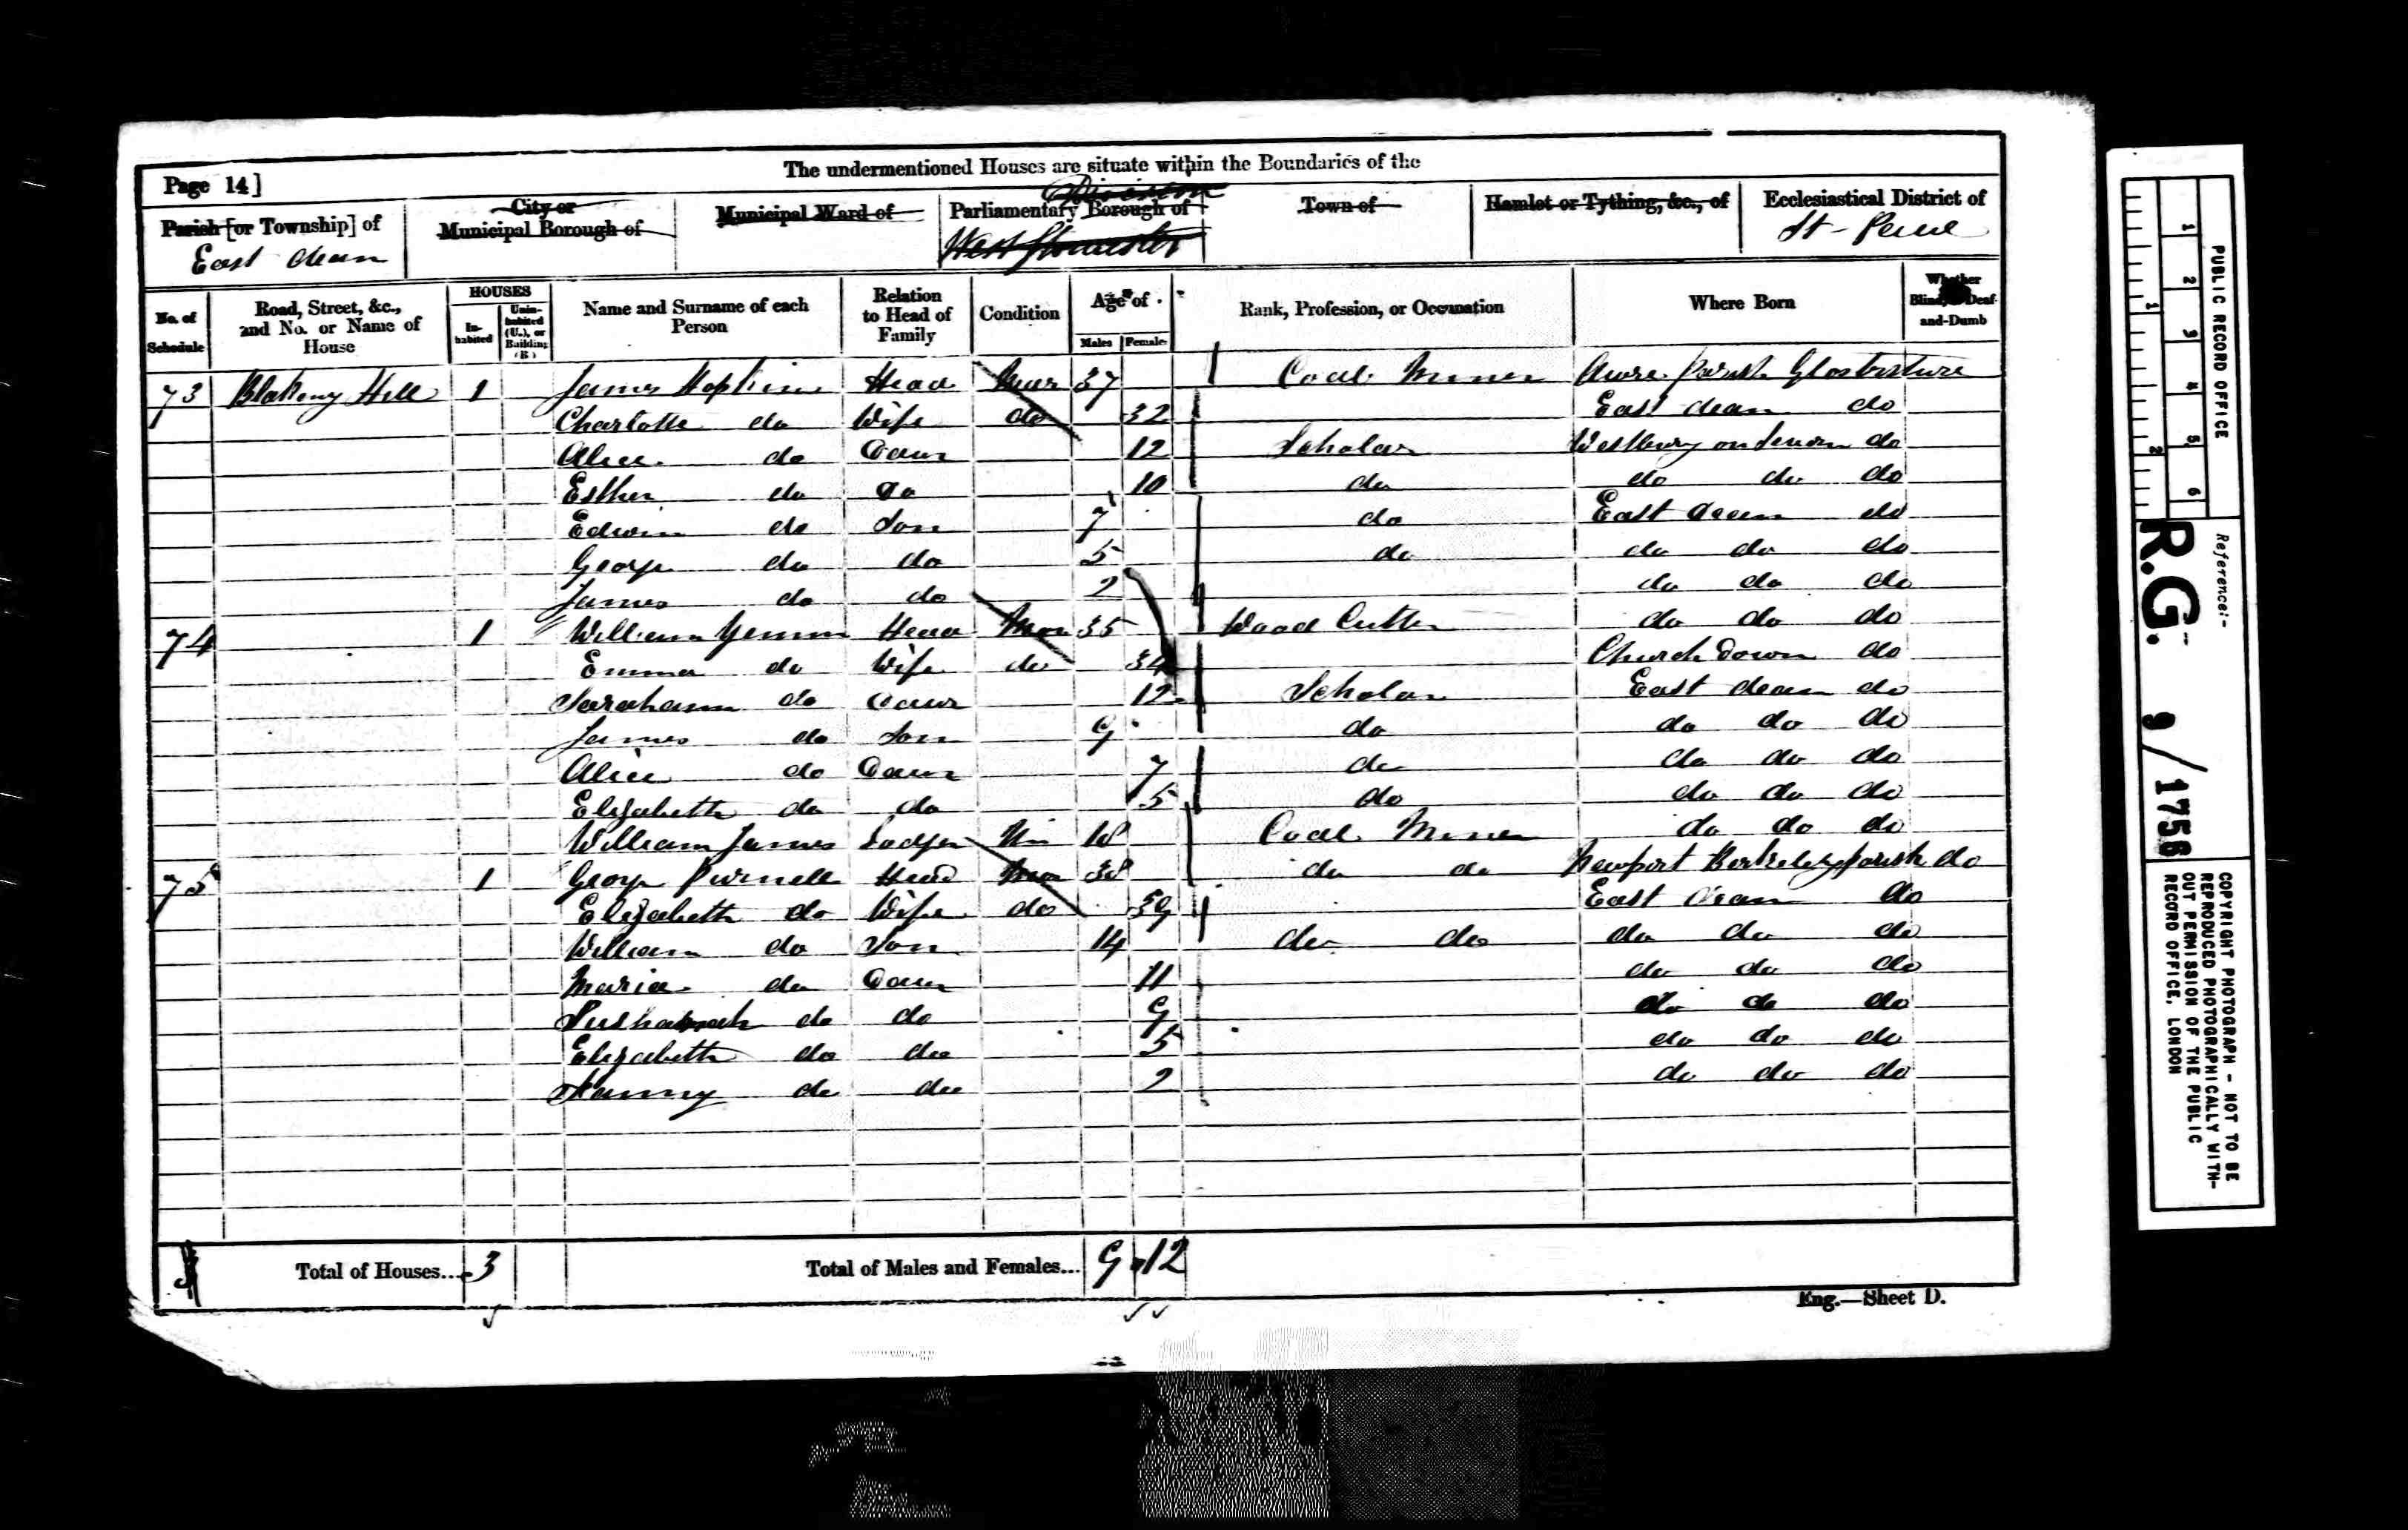 The undermentioned Houses are situate within the Boundaries of the
Page 14]
Parish [or Township] of
East Dean
City or
Municipal Borough of
Municipal Ward of
Division
Parliamentary Borough of
West Gloucester
Town of
Hamlet or Tything, &c., of
Ecclesiastical District of
St. Paul
No. of Schedule
Road, Street, &c., and No. or Name of House
HOUSES
In-habited
Unin-habited (U.), or Building (B.)
Name and Surname of each Person
Relation to Head of Family
Condition
Age of
Males
Females
Rank, Profession, or Occupation
Where Born
Whether Blind, or Deaf-and-Dumb
73 Blakeney Hill 1 James Hopkins Head Mar 37 Coal Miner Awre Parish Glostershire
Charlotte do Wife do 32 East Dean do
Alice do Daur 12 Scholar Westbury on Severn do
Esther do Do 10 do do do do
Edwin do Son 7 do East Dean do
George do do 5 do do do do
James do do 2 do do do
74 1 William Head Mar 35 Wood Cutter do do do
Emma do Wife do 34 Church Down do
Sarahann do Daur 12 Scholar East Dean do
James do Son 9 do do do do
Alice do Daur 7 do do do do
Elizabeth do do 5 do do do do
William James Lodger Un 18 Coal Miner do do do
75 1 George Purnell Head Mar 38 do do Newport Berkeley parish do
Elizabeth do Wife do 39 East Dean do
William do Son 14 do do do do do
Maria do Daur 11 do do do
do do 9 do do do
Elizabeth do do 5 do do do
Fanny do do 2 do do do
3 Total of Houses... 3 Total of Males and Females... 9 12
Eng.—Sheet D.
PUBLIC RECORD OFFICE
1 2 3 4 5 6
1 2
Reference:-
R.G. 9/1756
COPYRIGHT PHOTOGRAPH - NOT TO BE
REPRODUCED PHOTOGRAPHICALLY WITH-
OUT PERMISSION OF THE PUBLIC
RECORD OFFICE, LONDON